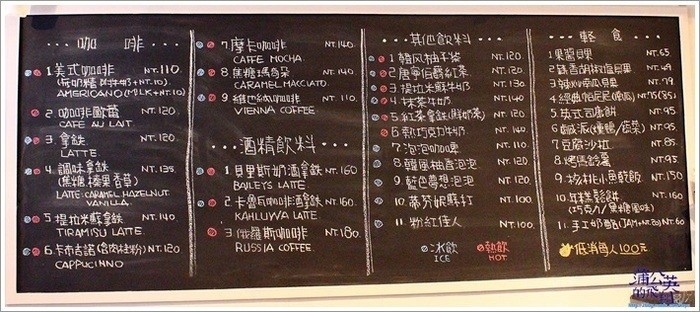 咖啡
1 美式咖啡 NT.110
AMERICANO(MILK+NT.10)
2 咖啡歐蕾 NT.120
CAFE AU LAIT
3 拿鐵 NT.120
LATTE
4 調味拿鐵 NT.135
(焦糖.榛果.香草)
LATTE:CARAMEL.HAZELNUT.
VANILLA
5 提拉米蘇拿鐵 NT.140
TIRAMISU LATTE
6 卡布吉諾(含肉桂粉) NT.120
CAPPUCINNO
7 摩卡咖啡 NT.140
CAFFE MOCHA
8 焦糖瑪奇朵 NT.140
CARAMEL MACCIATO
9 維也納咖啡 NT.110
VIENNA COFFEE
酒精飲料
1 貝里斯奶酒拿鐵 NT.160
BAILEYS LATTE
2 卡魯瓦咖啡酒拿鐵 NT.160
KAHLUWA LATTE
3 俄羅斯咖啡 NT.180
RUSSIA COFFEE
其他飲料
1 韓风柚子茶 NT.120
2 唐寧伯爵紅茶 NT.120
3 提拉米蘇牛奶 NT.130
4 抹茶牛奶 NT.140
5 紅茶拿鐵(鮮奶茶) NT.120
6 熱巧克力牛奶 NT.140
7 泡泡咖啡 NT.130
8 韓風柚香泡泡 NT.120
9 藍色夢想泡泡 NT.120
10 蘇打 NT.100
11 粉紅佳人 NT.100
冰飲 ICE
熱飲 HOT
輕食
1 果醬貝果 NT.65
2 貝果 NT.49
3 貝果 NT.79
4 經典帕尼尼 NT.75(85)
5 英式百匯餅 NT.95
6 鹹派(燻鴨/蔬菜) NT.95
7 豆腐沙拉 NT.85
8 烤馬鈴薯 NT.95
9 核桃小魚飯 NT.150
10 年糕鬆餅 NT.160
(巧克力/焦糖風味)
11 手工奶酪(JAM+NT.20) NT.60
低消每人100元
蒲公英